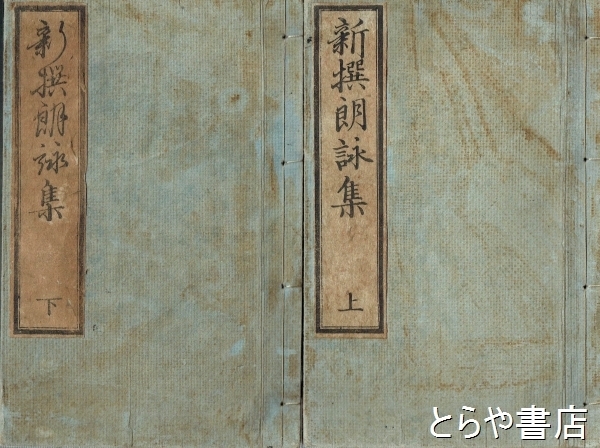 新撰朗詠集
上
新撰朗詠集
下
とらや書店